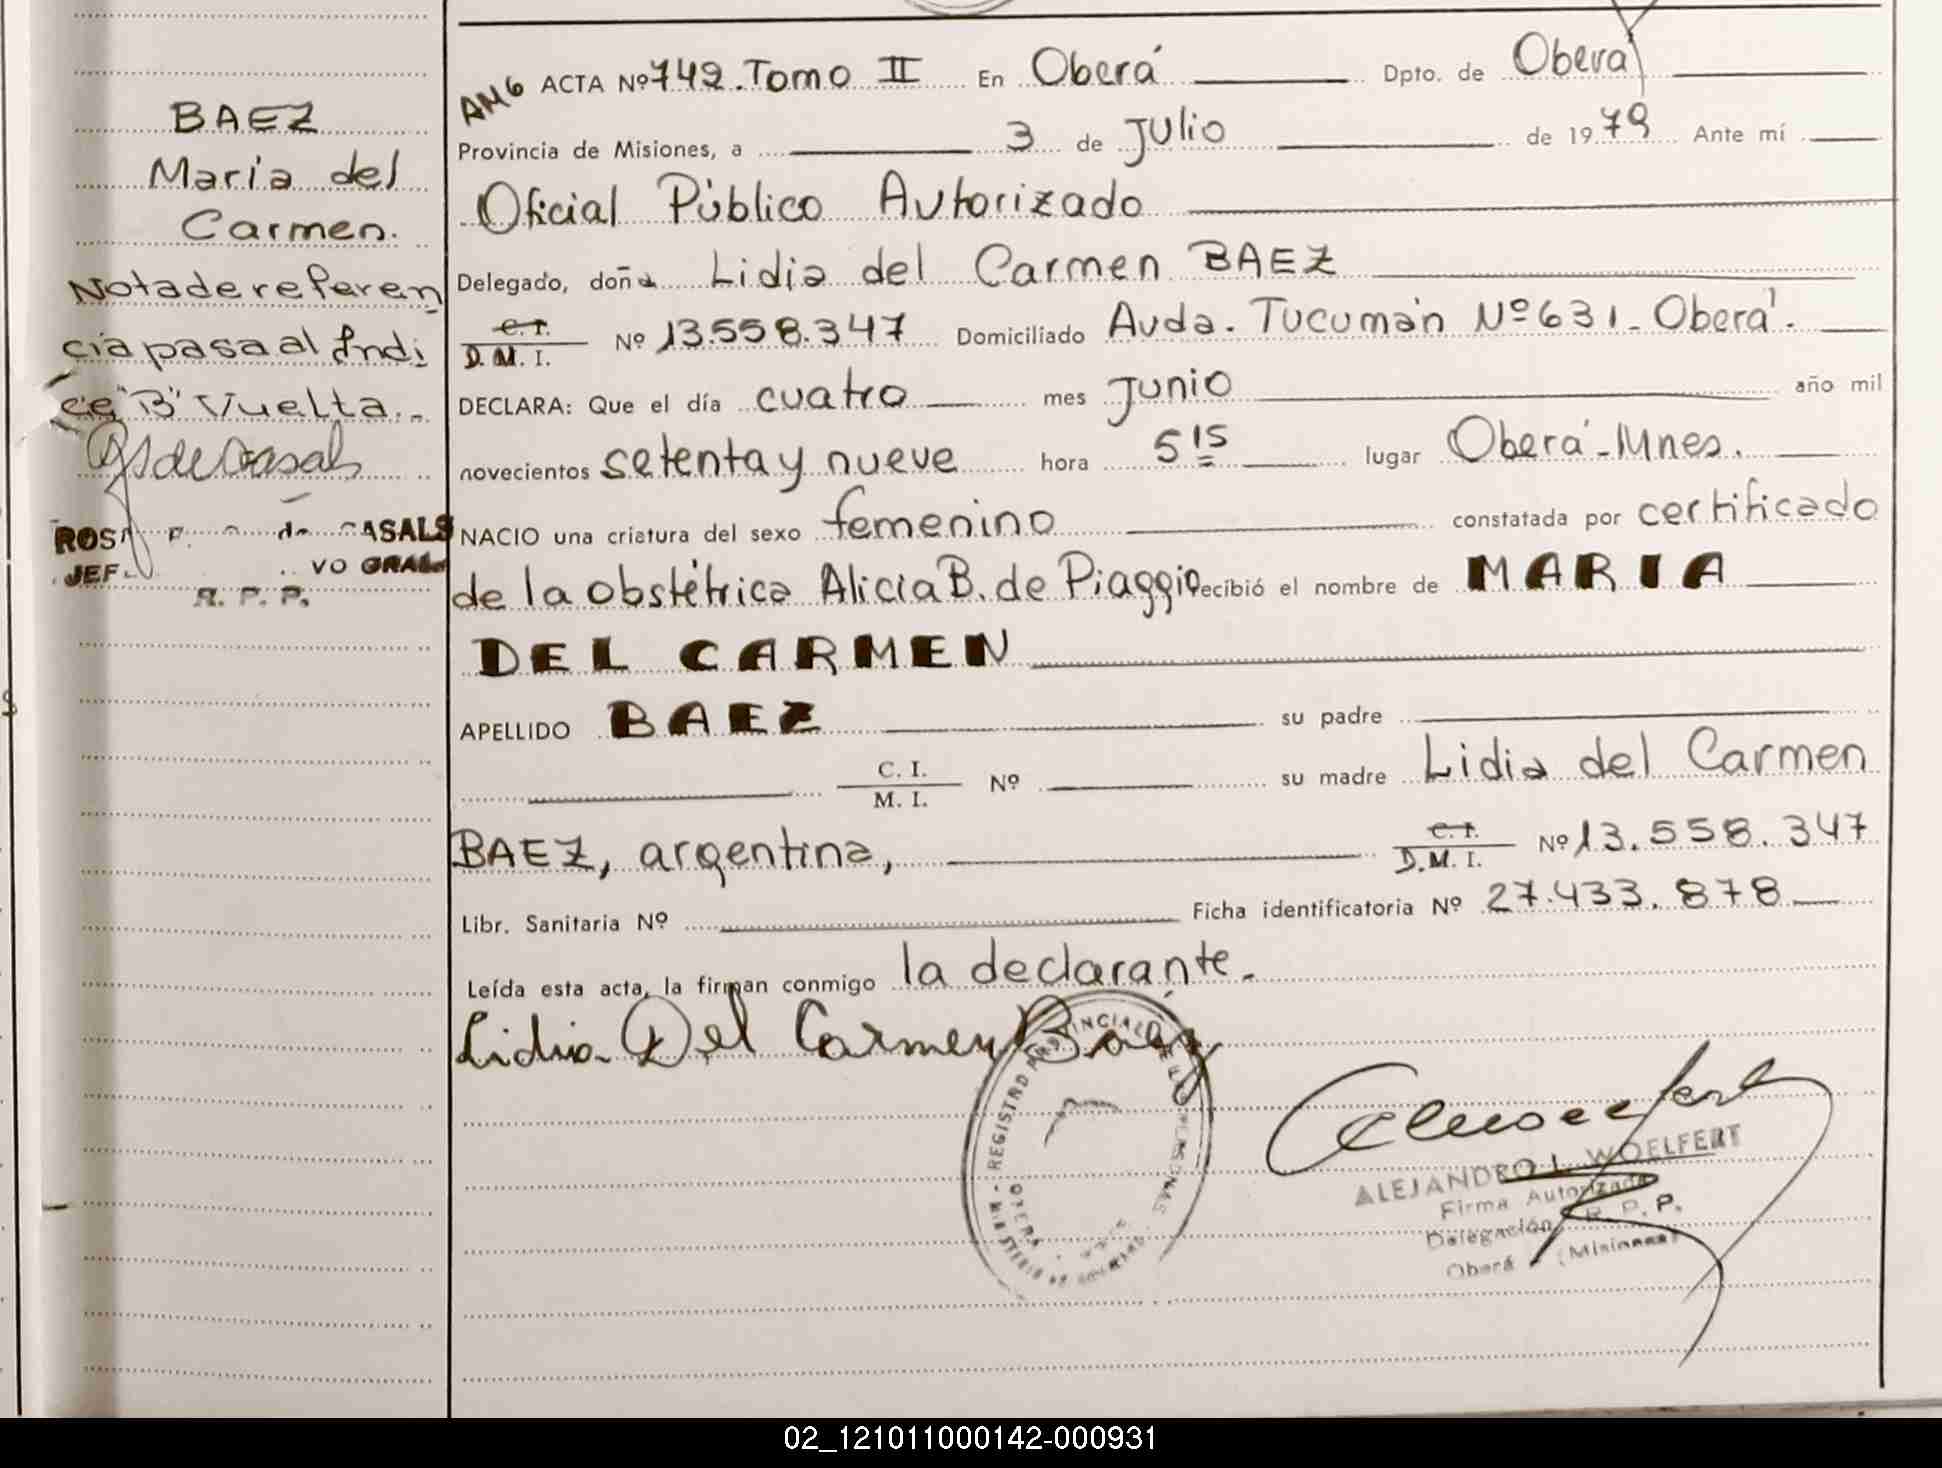 BAEZ
Maria del
Carmen.
Nota de referen
cia pasa al Indi
ce "B" Vuelta.-
CASALS
JEF
VO GRAL
R. P. P.
AM6 ACTA Nº 749. Tomo II En Oberá Dpto. de Oberá
Provincia de Misiones, a 3 de Julio de 1979 Ante mí
Oficial Público Autorizado
Delegado, doña Lidia del Carmen BAEZ
C. I. / D.M. I. Nº 13.558.347 Domiciliado Avda. Tucumán Nº 631- Oberá.
DECLARA: Que el día cuatro mes Junio año mil
novecientos setenta y nueve hora 5 15 lugar Oberá-Mnes.
NACIO una criatura del sexo femenino constatada por certificado
de la obstétrica Alicia B. de Piaggio recibió el nombre de MARIA
DEL CARMEN
APELLIDO BAEZ su padre
C. I. / M. I. Nº su madre Lidia del Carmen
BAEZ, argentina, C. I. / D.M. I. Nº 13.558.347
Libr. Sanitaria Nº Ficha identificatoria Nº 27.433.878
Leída esta acta, la firman conmigo la declarante.
Lidia Del Carmen Baez
REGISTRO PROVINCIAL DE LAS PERSONAS
ALEJANDRO L. WOELFERT
Firma Autorizada
Delegación R. P. P.
Oberá (Misiones)
02_121011000142-000931